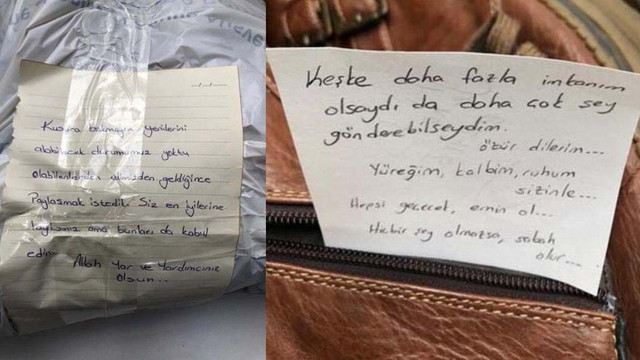 Kusura bakmayın yenilerini
alabilecek durumumuz yoktu
olabilenlerden elimizden geldiğince
Paylaşmak istedik. Siz en iyilerine
layıksınız ama bunları da kabul
edin. Allah Yar ve Yardımcınız
olsun...
Keşke daha fazla imkanım
olsaydı da daha çok şey
gönderebilseydim.
özür dilerim...
Yüreğim, kalbim, ruhum
sizinle...
Hepsi geçecek, emin ol...
Hiçbir şey olmazsa, sabah
olur...